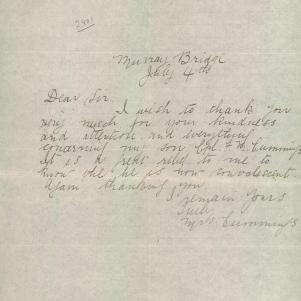 Murray Bridge
July 4th
Dear Sir.
I wish to thank you
very much for your kindness
and attention and everything
concerning my son Cpl. F. W. Cummings
it is a great relief to me to
know that he is now convalescent.
Again thanking you
I remain Yours
Truly
Mrs Cummings